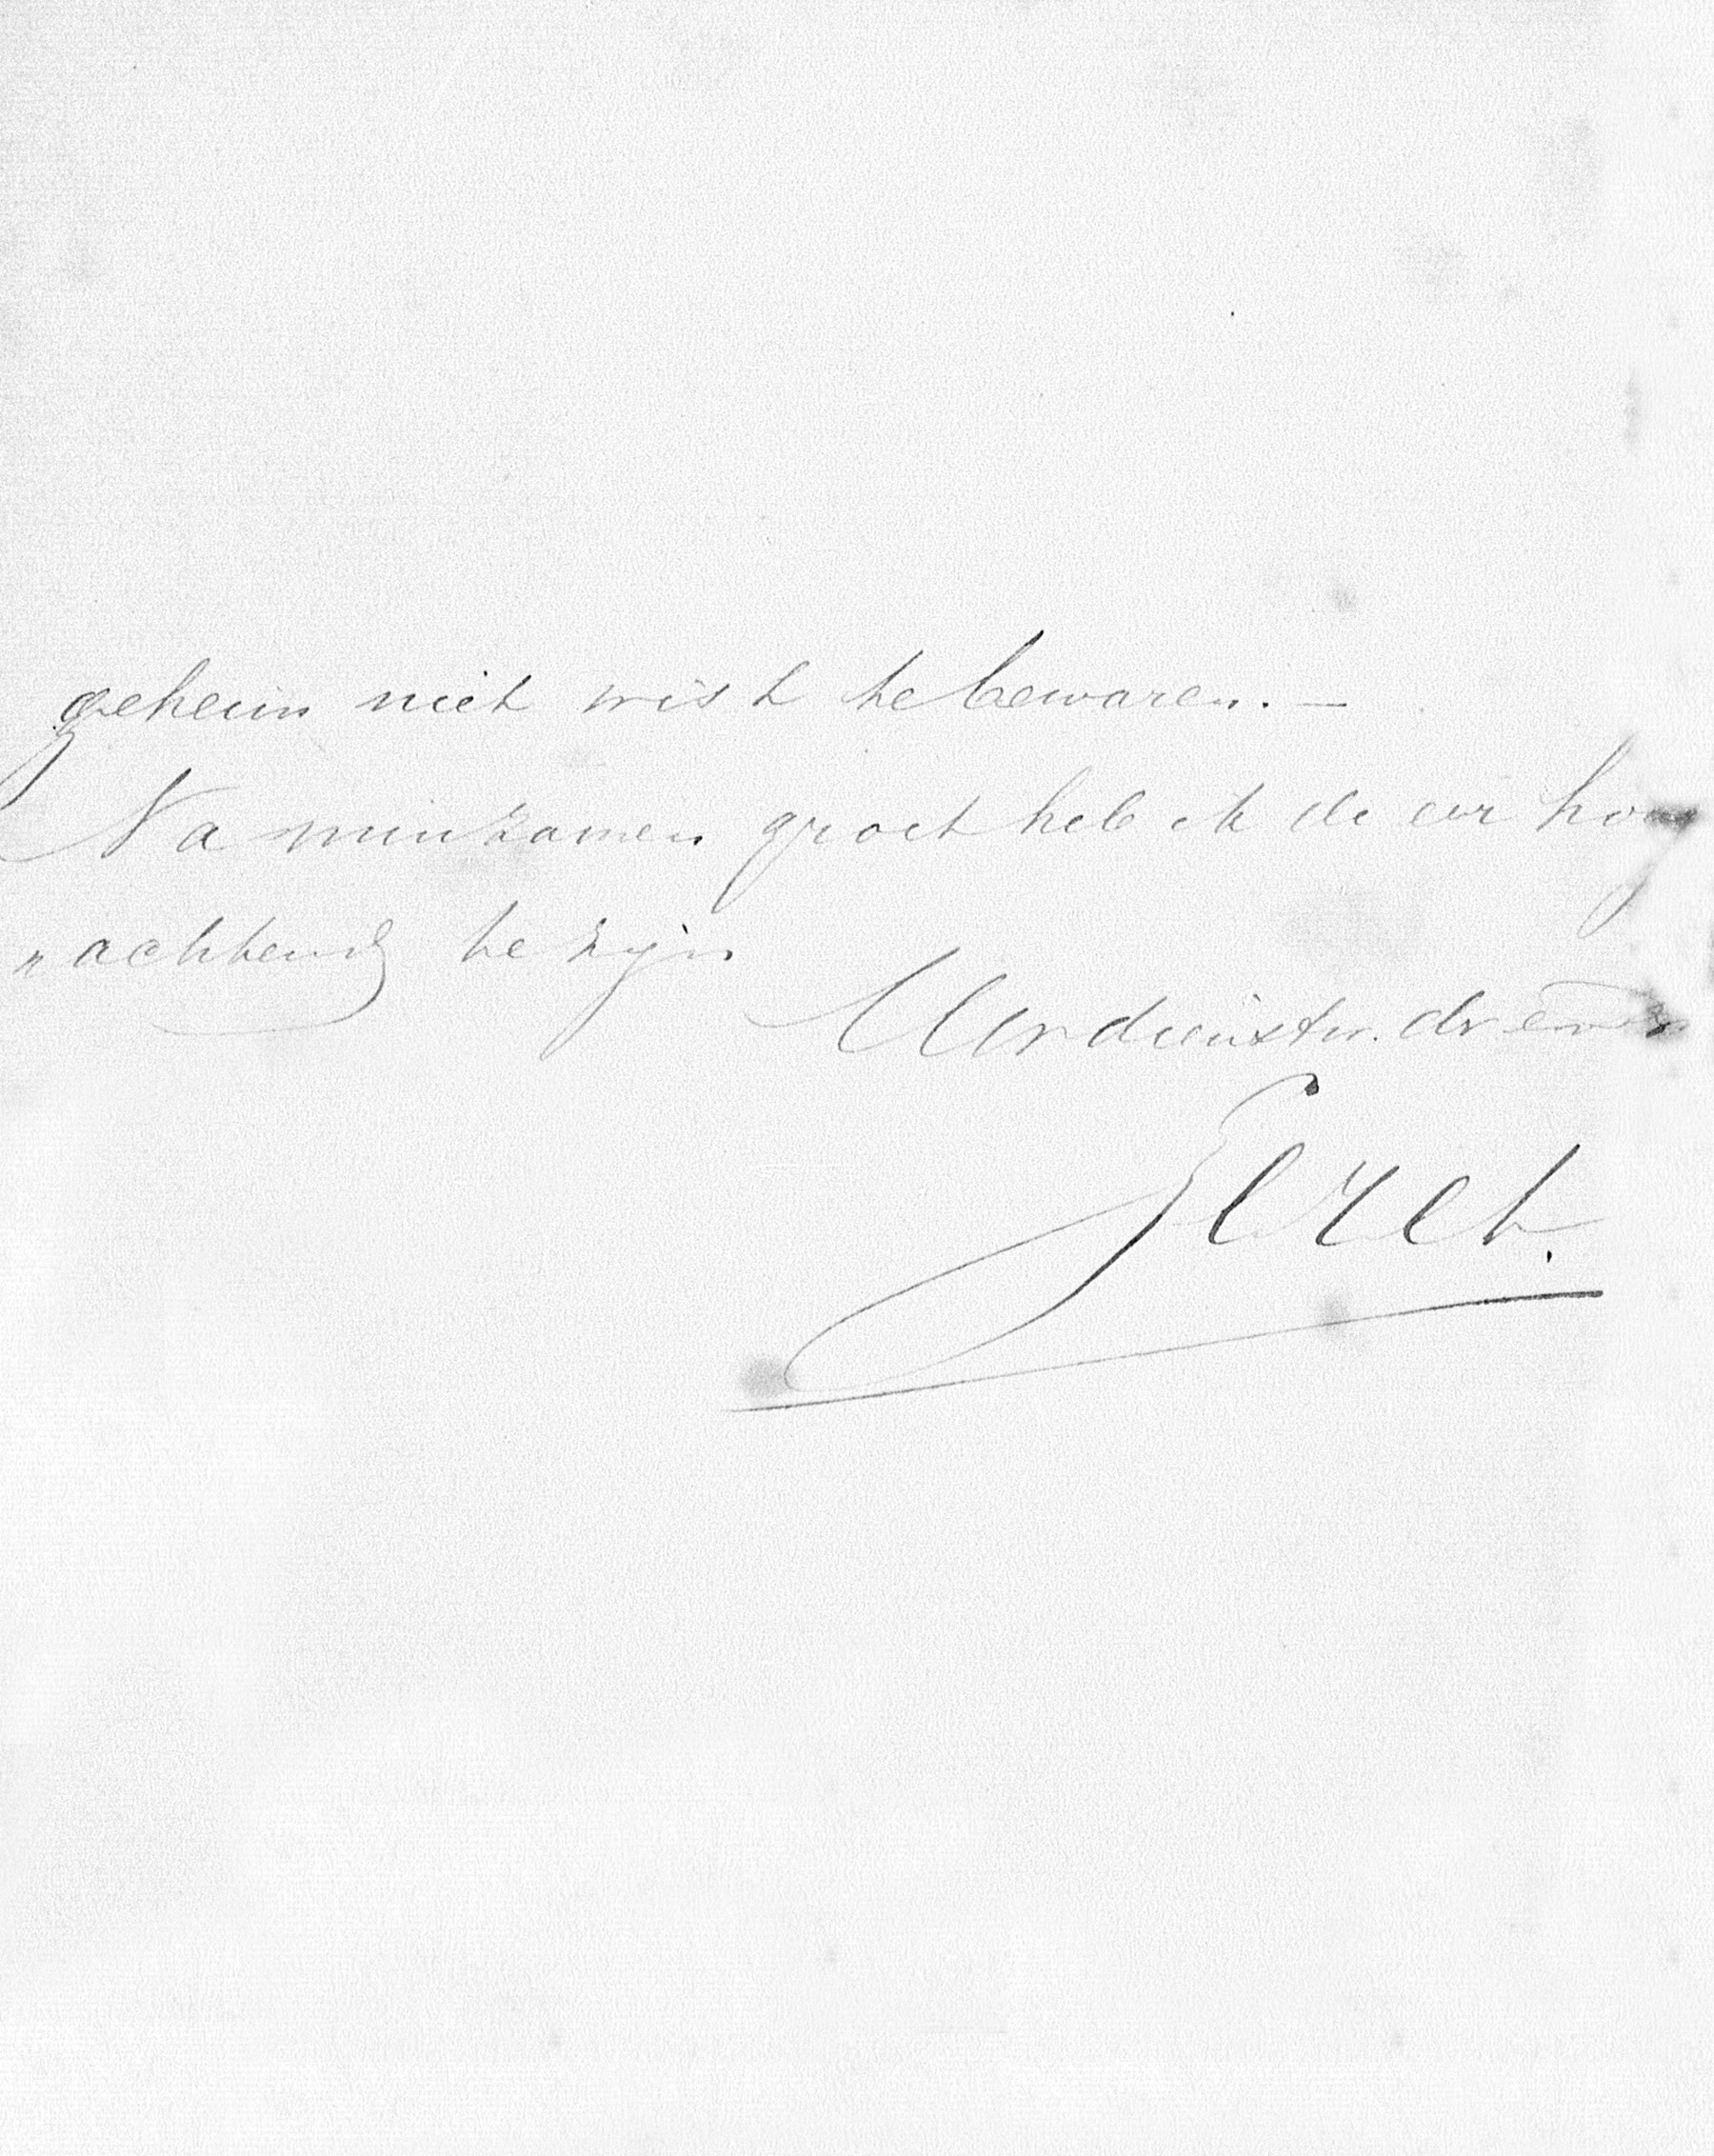 geheim niet wist te bewaren. —
Na minzamen groet heb ik de eer hoog
" achtend te zijn
Uw dienstw. dr
Elzet.